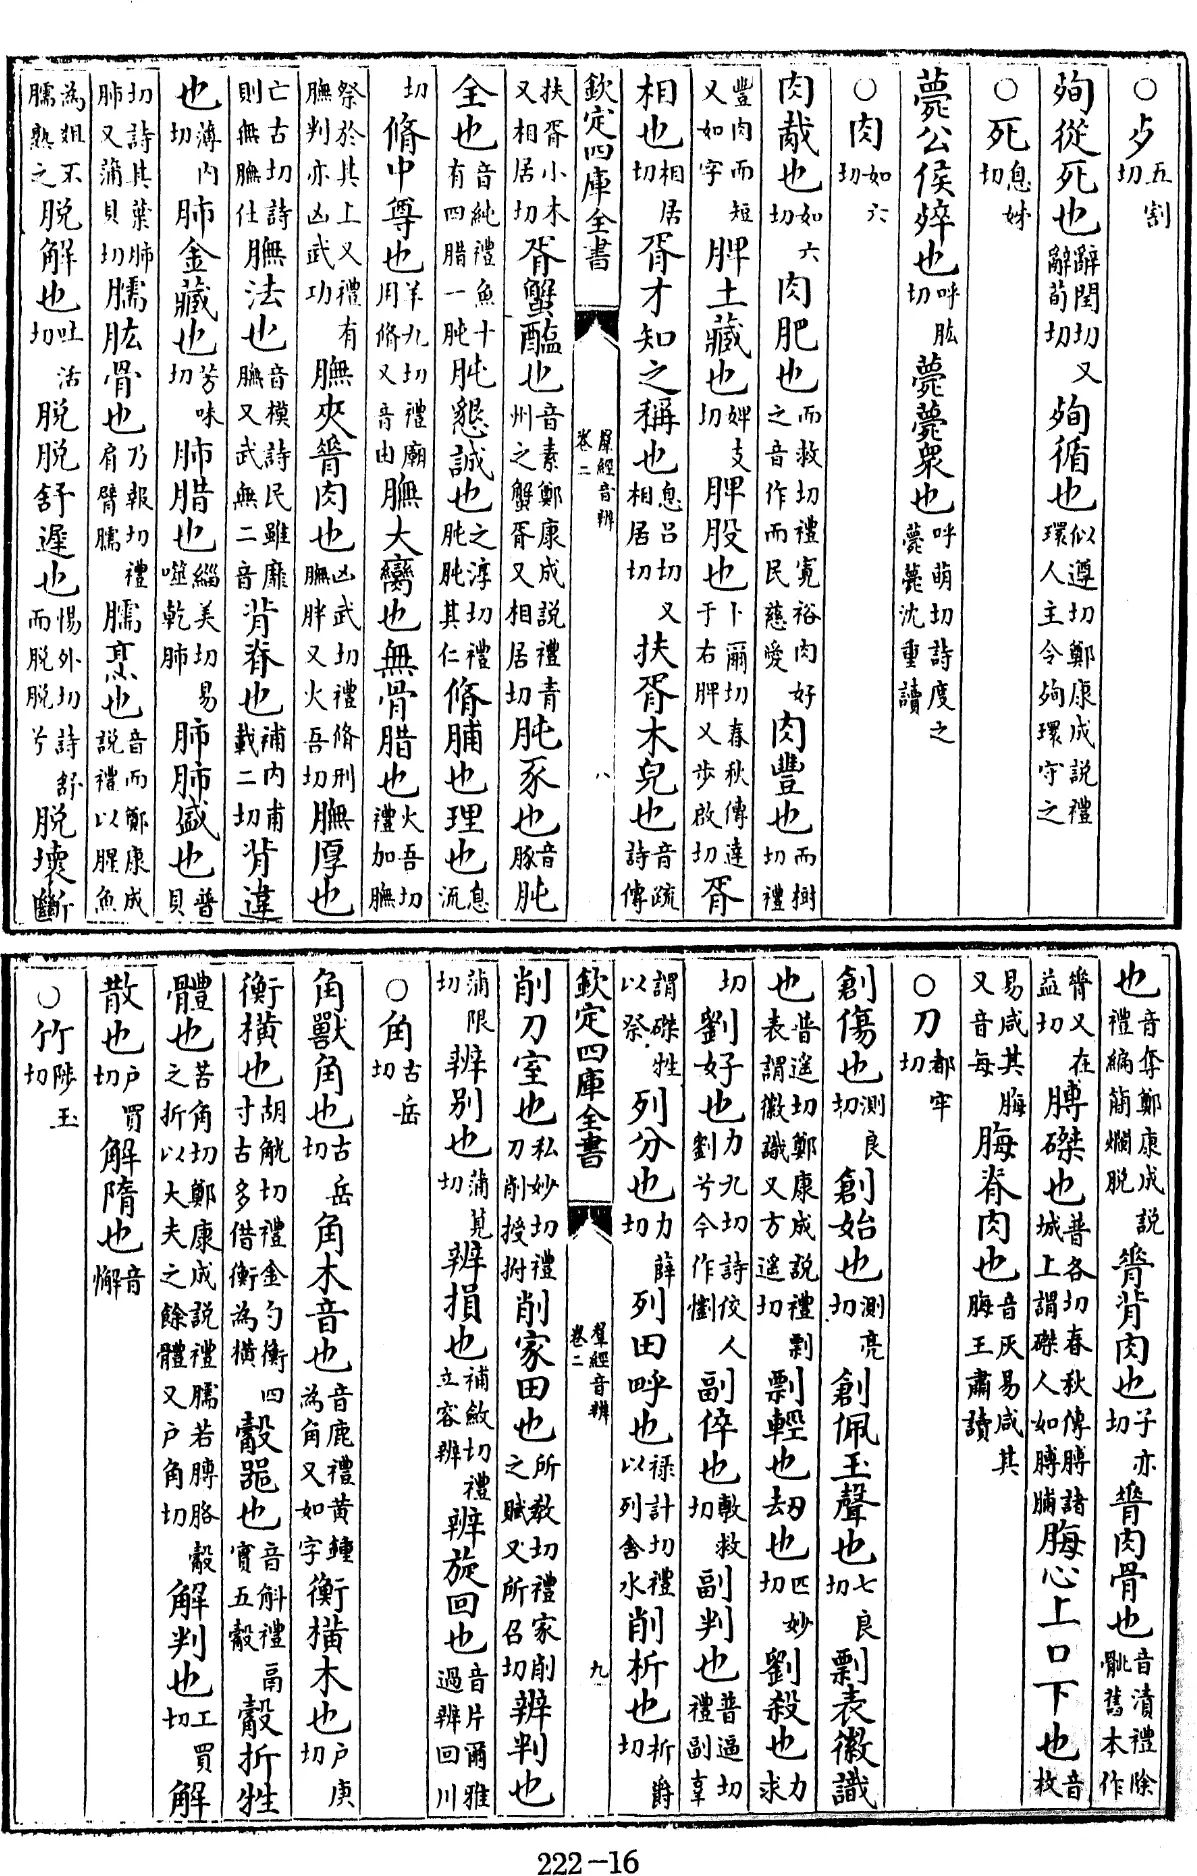 ○歺五割切
殉從死也辭閏切又辭荀切殉循也似遵切鄭康成説禮環人主令殉環守之
○死息姊切
薨公侯𣨛也呼肱切薨薨衆也呼萌切詩度之薨薨沈重讀
○肉如六切
肉胾也如六切肉肥也而救切禮寛裕肉好之音作而民慈愛肉豐也而樹切禮
豐肉而短又如字脾土藏也婢支切脾股也卜爾切春秋傳達于右脾又步啟切胥
相也相居切胥才知之稱也息呂切又相居切扶胥木皃也音疏詩傳
欽定四庫全書 羣經音辨卷二 八
扶胥小木又相居切胥蟹醢也音素鄭康成説禮青州之蟹胥又相居切肫豕也音豚肫
全也音純禮魚十有四腊一肫肫懇誠也之淳切禮肫肫其仁脩脯也理也息流
切脩中尊也羊九切禮廟用脩又音由膴大臠也無骨腊也火吾切禮加膴
祭於其上又禮有膴判亦凶武功膴夾脊肉也凶武切禮脩刑膴胖又火吾切膴厚也
亡古切詩則無膴仕膴法也音模詩民雖靡膴又武無二音背脊也補內甫載二切背違
也薄內切肺金藏也芳味切肺腊也緇美切易噬乾肺肺肺盛也普貝
切詩其葉肺肺又蒲貝切臑肱骨也乃報切禮肩臂臑臑烹也音而鄭康成説禮以腥魚
為俎不臑熟之脱解也吐活切脱脱舒遲也惕外切詩舒而脱脱兮脱壞斷
也音奪鄭康成説禮編蕳爛脱膂背肉也子亦切膂肉骨也音漬禮除骴舊本作
膂又在益切膊磔也普各切春秋傳膊諸城上謂磔人如膊脯脢心上口下也音枚
易咸其脢又音每脢脊肉也音灰易咸其脢王肅讀
○刀都牢切
創傷也測良切創始也測亮切創佩玉聲也七良切剽表徽識
也普遥切鄭康成説禮剽表謂徽識又方遥切剽輕也刼也匹妙切劉殺也力求
切劉好也力九切詩佼人劉兮今作懰副倅也敷救切副判也普逼切禮副辜
謂磔牲以祭列分也力薛切列田呼也禄計切禮以列舍水削析也析爵切
欽定四庫全書 羣經音辨卷二 九
削刀室也私妙切禮刀削授拊削家田也所教切禮家削之賦又所召切辨判也
蒲限切辨别也蒲莧切辨損也補斂切禮立容辨辨旋回也音片爾雅過辨回川
○角古岳切
角獸角也古岳切角木音也音鹿禮黄鍾為角又如字衡横木也户庚切
衡横也胡觥切禮金勺衡四寸古多借衡為横觳噐也音斛禮鬲實五觳觳折牲
體也苦角切鄭康成説禮臑若膊胳觳之折以大夫之餘體又户角切解判也工買切解
散也户買切解隋也音懈
○竹陟玉切
222-16